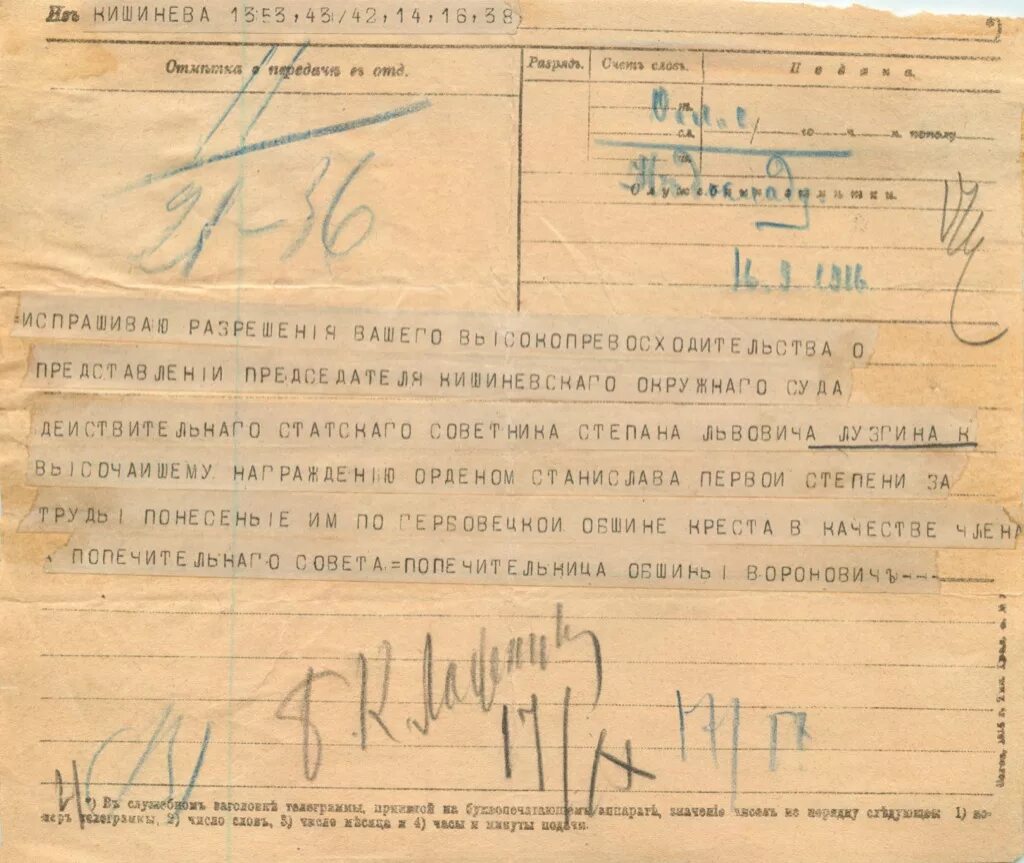 Изъ КИШИНЕВА 1353,43/42,14,16,38
*)
Отмѣтка о передачѣ въ отд.
Разрядъ. Счетъ словъ. Подача.
21-36
го ч. м. пополу
Служебныя отмѣтки.
16.9.1916.
=ИСПРАШИВАЮ РАЗРЕШЕНІЯ ВАШЕГО ВЫСОКОПРЕВОСХОДИТЕЛЬСТВА О
ПРЕДСТАВЛЕНІИ ПРЕДСЕДАТЕЛЯ КИШИНЕВСКАГО ОКРУЖНАГО СУДА
ДЕИСТВИТЕЛЬНАГО СТАТСКАГО СОВЕТНИКА СТЕПАНА ЛЬВОВИЧА ЛУЗГИНА К
ВЫСОЧАИШЕМУ НАГРАЖДЕНІЮ ОРДЕНОМ СТАНИСЛАВА ПЕРВОИ СТЕПЕНИ ЗА
ТРУДЫ ПОНЕСЕНЫЕ ИМ ПО ГЕРБОВЕЦКОИ ОБШИНЕ КРЕСТА В КАЧЕСТВЕ ЧЛЕНА
ПОПЕЧИТЕЛЬНАГО СОВЕТА=ПОПЕЧИТЕЛЬНИЦА ОБШИНЫ ВОРОНОВИЧЪ---
17/IX 17/IX
*) Въ служебномъ заголовкѣ телеграммы, принятой на буквопечатающемъ аппаратѣ, значеніе чиселъ по порядку слѣдующее: 1) но-
меръ телеграммы, 2) число словъ, 3) число мѣсяца и 4) часы и минуты подачи.